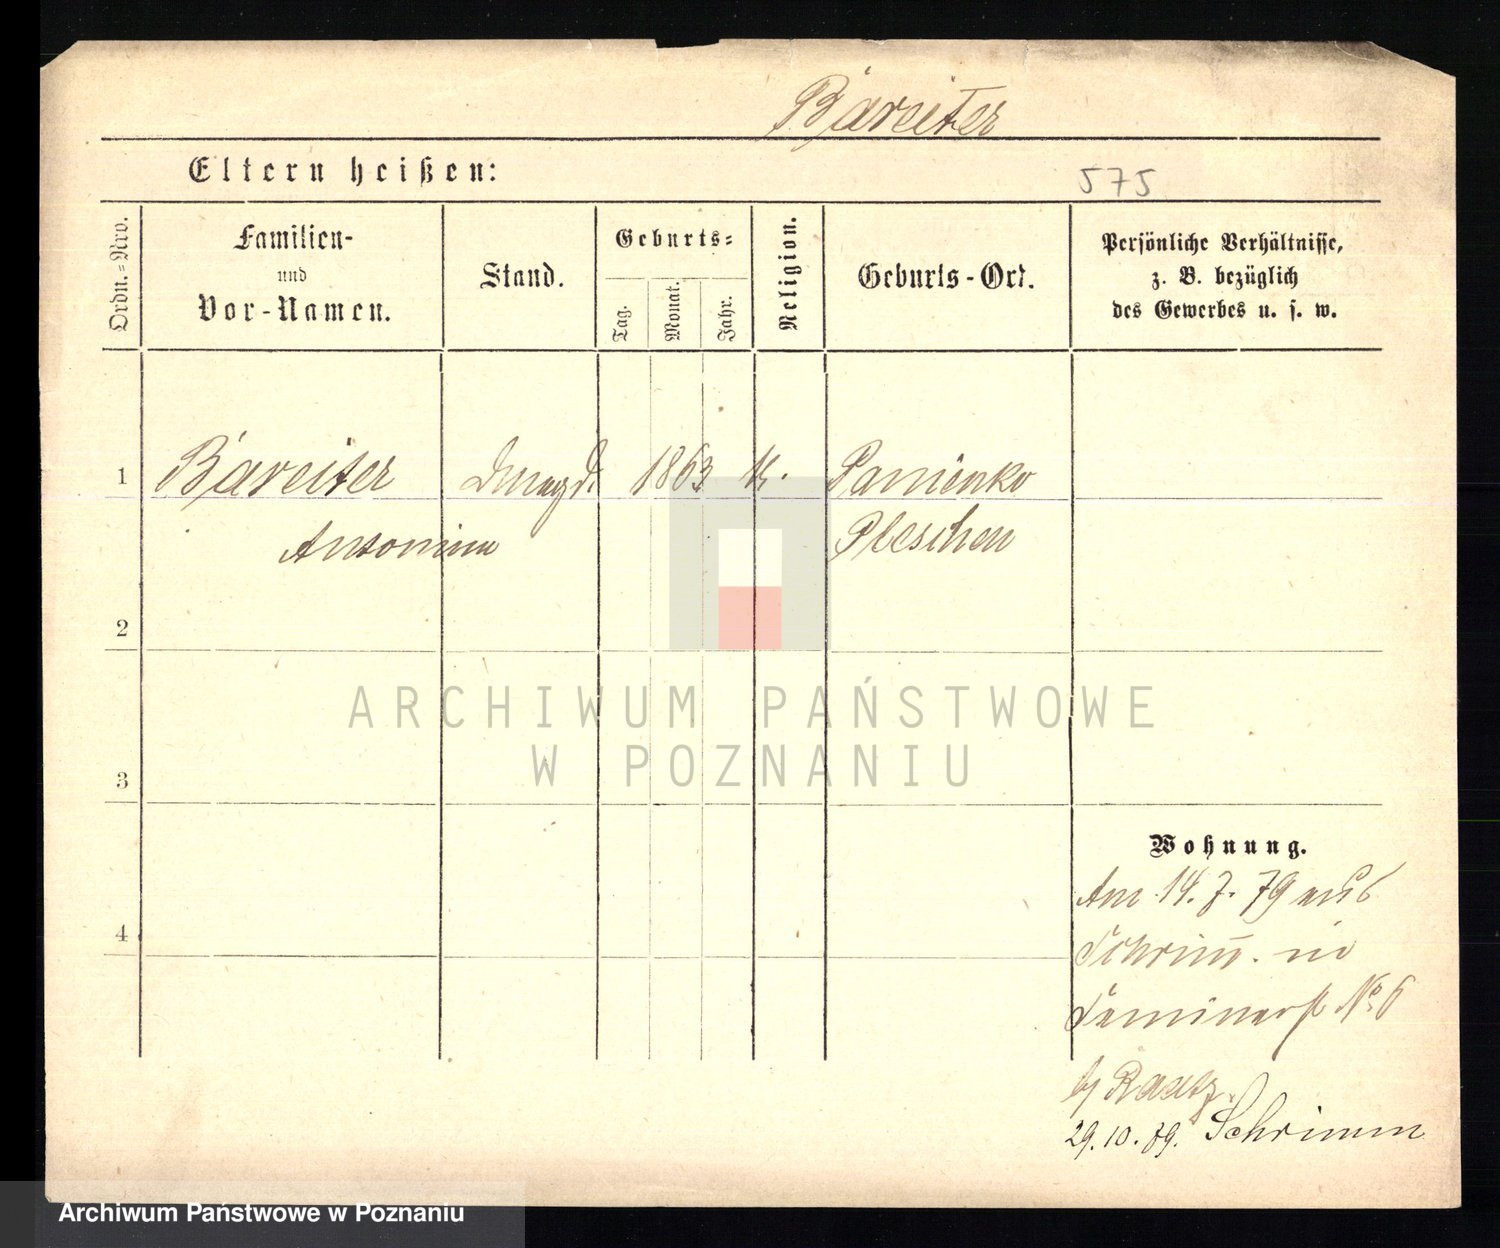 Bareiter
Eltern heißen:
575
Ordn.=Nro.
Familien-
und
Vor-Namen.
Stand.
Geburts=
Tag.
Monat.
Jahr.
Religion.
Geburts-Ort.
Persönliche Verhältnisse,
z. B. bezüglich
des Gewerbes u. s. w.
1
Bareiter
Dmagd.
1863
k.
Panienko
Antonina
Pleschen
2
3
ARCHIWUM PAŃSTWOWE
W POZNANIU
Wohnung.
4
Am 14. 7. 79 aus
Schrim̄. in
Seminarst No 6
b/
29.10.89. Schrimm
Archiwum Państwowe w Poznaniu